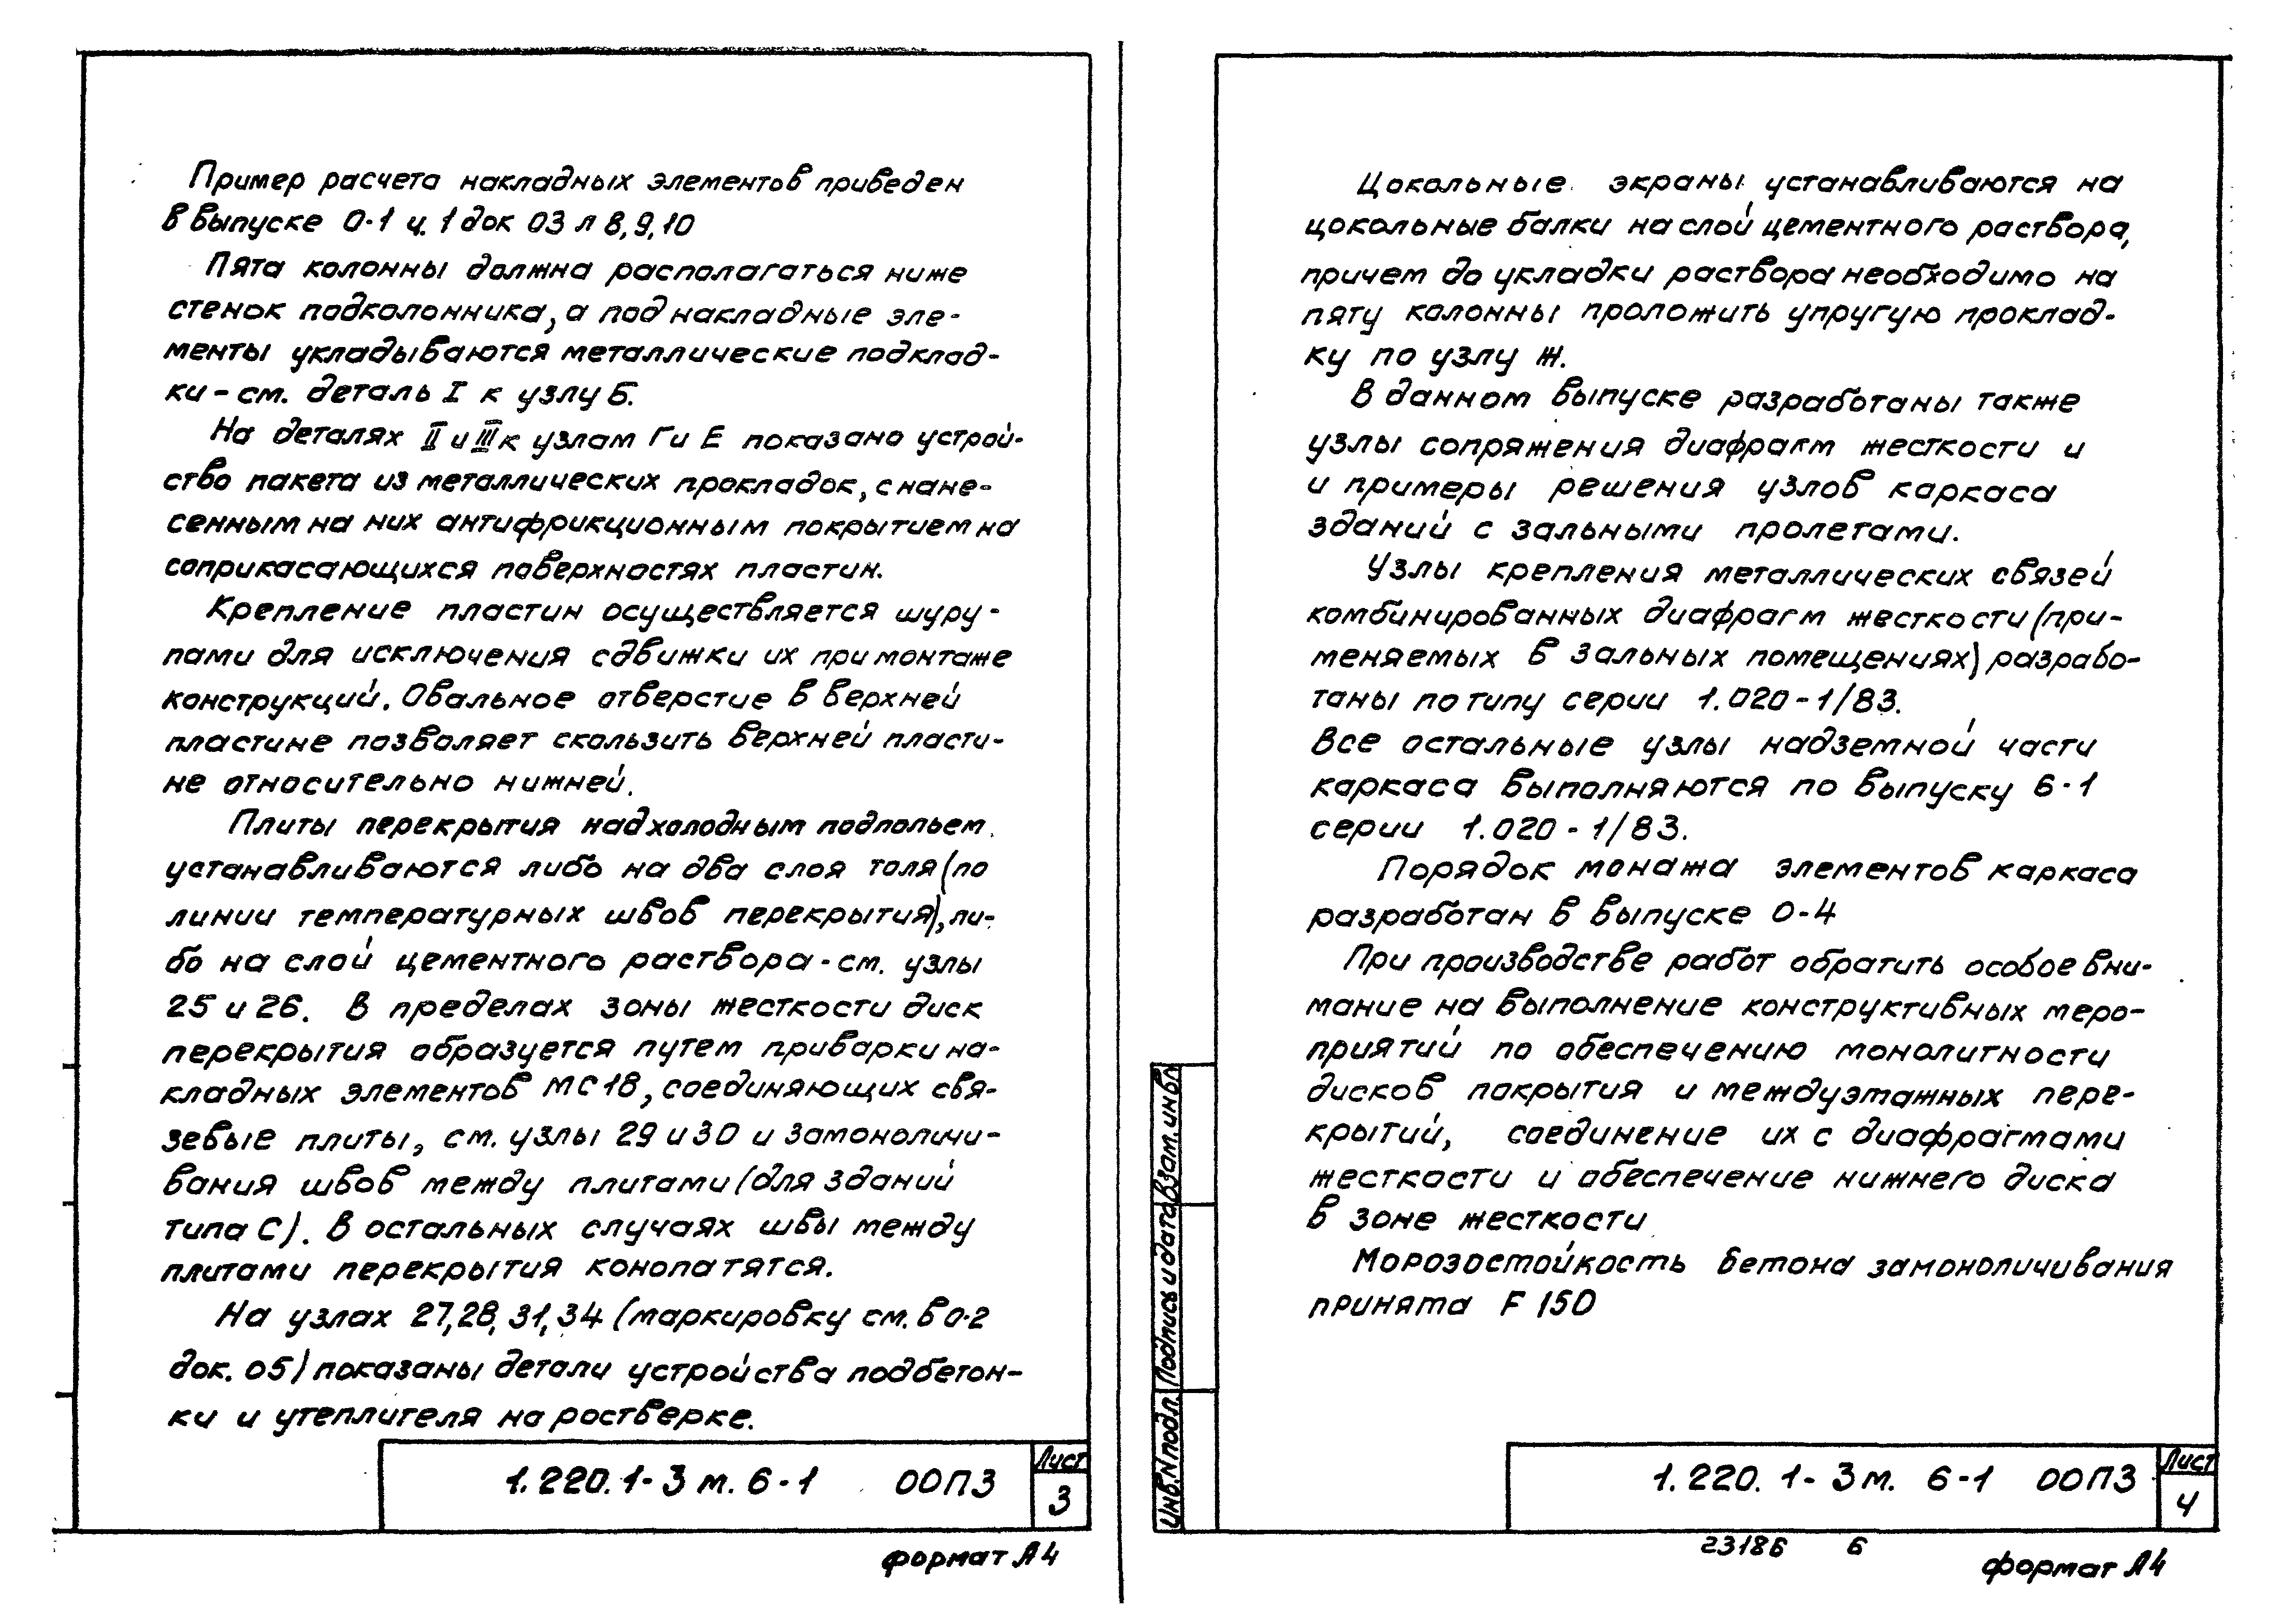 Пример расчета накладных элементов приведен
в выпуске 0-1 ч. 1 док 03 л 8,9,10
Пята колонны должна располагаться ниже
стенок подколонника, а под накладные эле-
менты укладываются металлические подклад-
ки - см. деталь I к узлу Б.
На деталях II и III к узлам Г и Е показано устрой-
ство пакета из металлических прокладок, с нане-
сенным на них антифрикционным покрытием на
соприкасающихся поверхностях пластин.
Крепление пластин осуществляется шуру-
пами для исключения сдвижки их при монтаже
конструкций. Овальное отверстие в верхней
пластине позволяет скользить верхней пласти-
не относительно нижней.
Плиты перекрытия над холодным подпольем
устанавливаются либо на два слоя толя (по
линии температурных швов перекрытия), ли-
бо на слой цементного раствора - см. узлы
25 и 26. В пределах зоны жесткости диск
перекрытия образуется путем приварки на-
кладных элементов МС18, соединяющих свя-
зевые плиты, см. узлы 29 и 30 и замоноличи-
вания швов между плитами (для зданий
типа С). В остальных случаях швы между
плитами перекрытия конопатятся.
На узлах 27, 28, 31, 34 (маркировку см. в 0-2
док. 05) показаны детали устройства подбетон-
ки и утеплителя на ростверке.
1.220.1-3м. 6-1 00ПЗ
Лист
3
формат А4
Цокольные экраны устанавливаются на
цокольные балки на слой цементного раствора,
причем до укладки раствора необходимо на
пяту колонны проложить упругую проклад-
ку по узлу Ж.
В данном выпуске разработаны также
узлы сопряжения диафрагм жесткости и
и примеры решения узлов каркаса
зданий с зальными пролетами.
Узлы крепления металлических связей
комбинированных диафрагм жесткости (при-
меняемых в зальных помещениях) разрабо-
таны по типу серии 1.020-1/83.
Все остальные узлы надземной части
каркаса выполняются по выпуску 6-1
серии 1.020-1/83.
Порядок монажа элементов каркаса
разработан в выпуске 0-4
При производстве работ обратить особое вни-
мание на выполнение конструктивных меро-
приятий по обеспечению монолитности
дисков покрытия и междуэтажных пере-
крытий, соединение их с диафрагмами
жесткости и обеспечение нижнего диска
в зоне жесткости
Морозостойкость бетона замоноличивания
принята F 150
Инв.N подл. Подпись и дата Взам. инв.N
1.220.1-3м. 6-1 00ПЗ
Лист
4
23186 6
формат А4